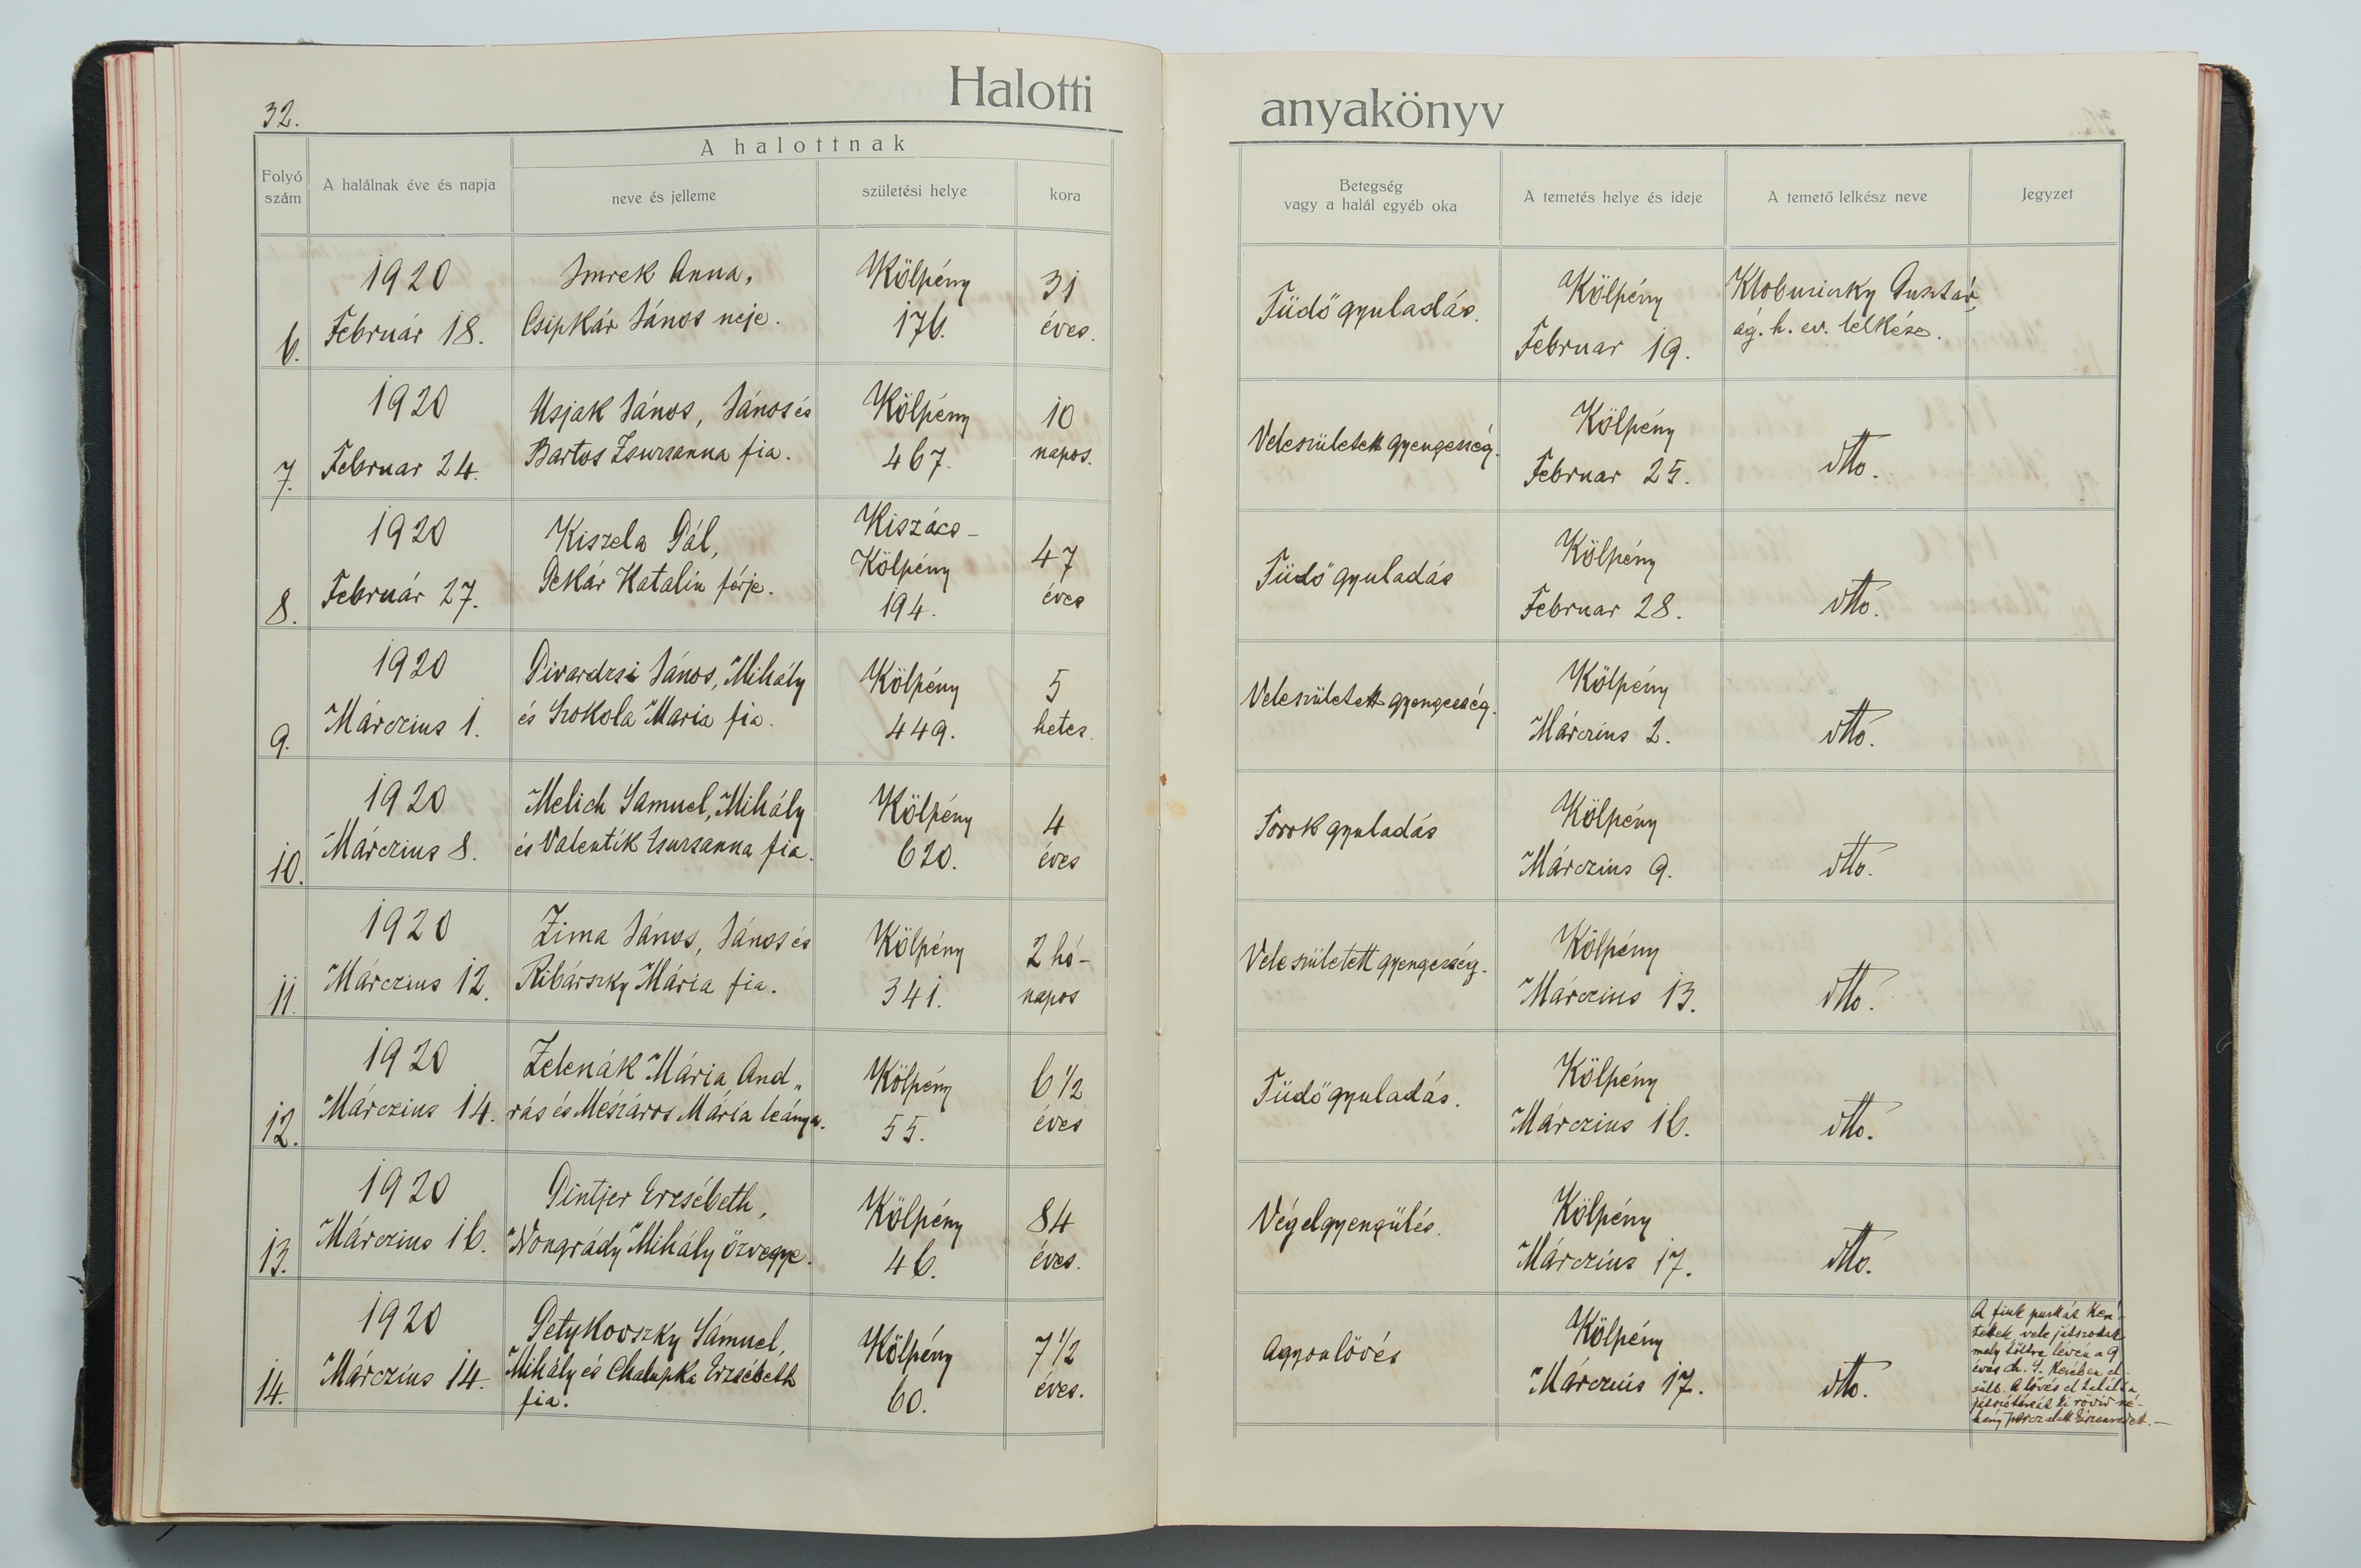 32.
Halotti anyakönyv
A halottnak
Folyó szám
A halálnak éve és napja
neve és jelleme
születési helye
kora
Betegség
vagy a halál egyéb oka
A temetés helye és ideje
A temető lelkész neve
Jegyzet
6.
1920
Február 18.
Imrek Anna,
Csipkár János neje.
Kölpény
176.
31
éves.
Tüdőgyuladás.
Kölpény
Februar 19.
Klobusiczky Gusztáv,
ág. h. ev. lelkész.
7.
1920
Februar 24.
Usjak János, János és
Bartos Zsuzsanna fia.
Kölpény
467.
10
napos.
Veleszületett gyengeség.
Kölpény
Februar 25.
dtto.
8.
1920
Február 27.
Kiszela Pál,
Pekár Katalin férje.
Kiszács-
Kölpény
194.
47
éves
Tüdőgyuladás
Kölpény
Februar 28.
dtto.
9.
1920
Márczius 1.
Pivardzsi János, Mihály
és Szokola Maria fia.
Kölpény
449.
5
hetes.
Veleszületett gyengeség.
Kölpény
Márczius 2.
dtto.
10.
1920
Márczius 8.
Melich Samuel, Mihály
és Valentik Zsuzsanna fia.
Kölpény
620.
4
éves
Torokgyuladás
Kölpény
Márczius 9.
dtto.
11.
1920
Márczius 12.
Zima János, János és
Ribárszky Mária fia.
Kölpény
341.
2 hó-
napos
Veleszületett gyengeség.
Kölpény
Márczius 13.
dtto.
12.
1920
Márczius 14.
Zelenák Mária And„
rás és Mészáros Mária leánya.
Kölpény
55.
6 1/2
éves
Tüdőgyuladás.
Kölpény
Márczius 16.
dtto.
13.
1920
Márczius 16.
Pintjer Erzsébeth,
Nongrády Mihály özvegye.
Kölpény
46.
84
éves.
Végelgyengülés.
Kölpény
Márczius 17.
dtto.
14.
1920
Márczius 14.
Petykovszky Sámuel,
Mihály és Chalupka Erzsébeth
fia.
Kölpény
60.
7 1/2
éves.
Agyonlövés
Kölpény
Márczius 17.
dtto.
A fiuk puskát
vele játszottak
mely töltve lévén a 9
éves kezében el-
sült. A lövés el találta
játszótársát ki rövid né-
hány percz alatt kiszenvedett.—